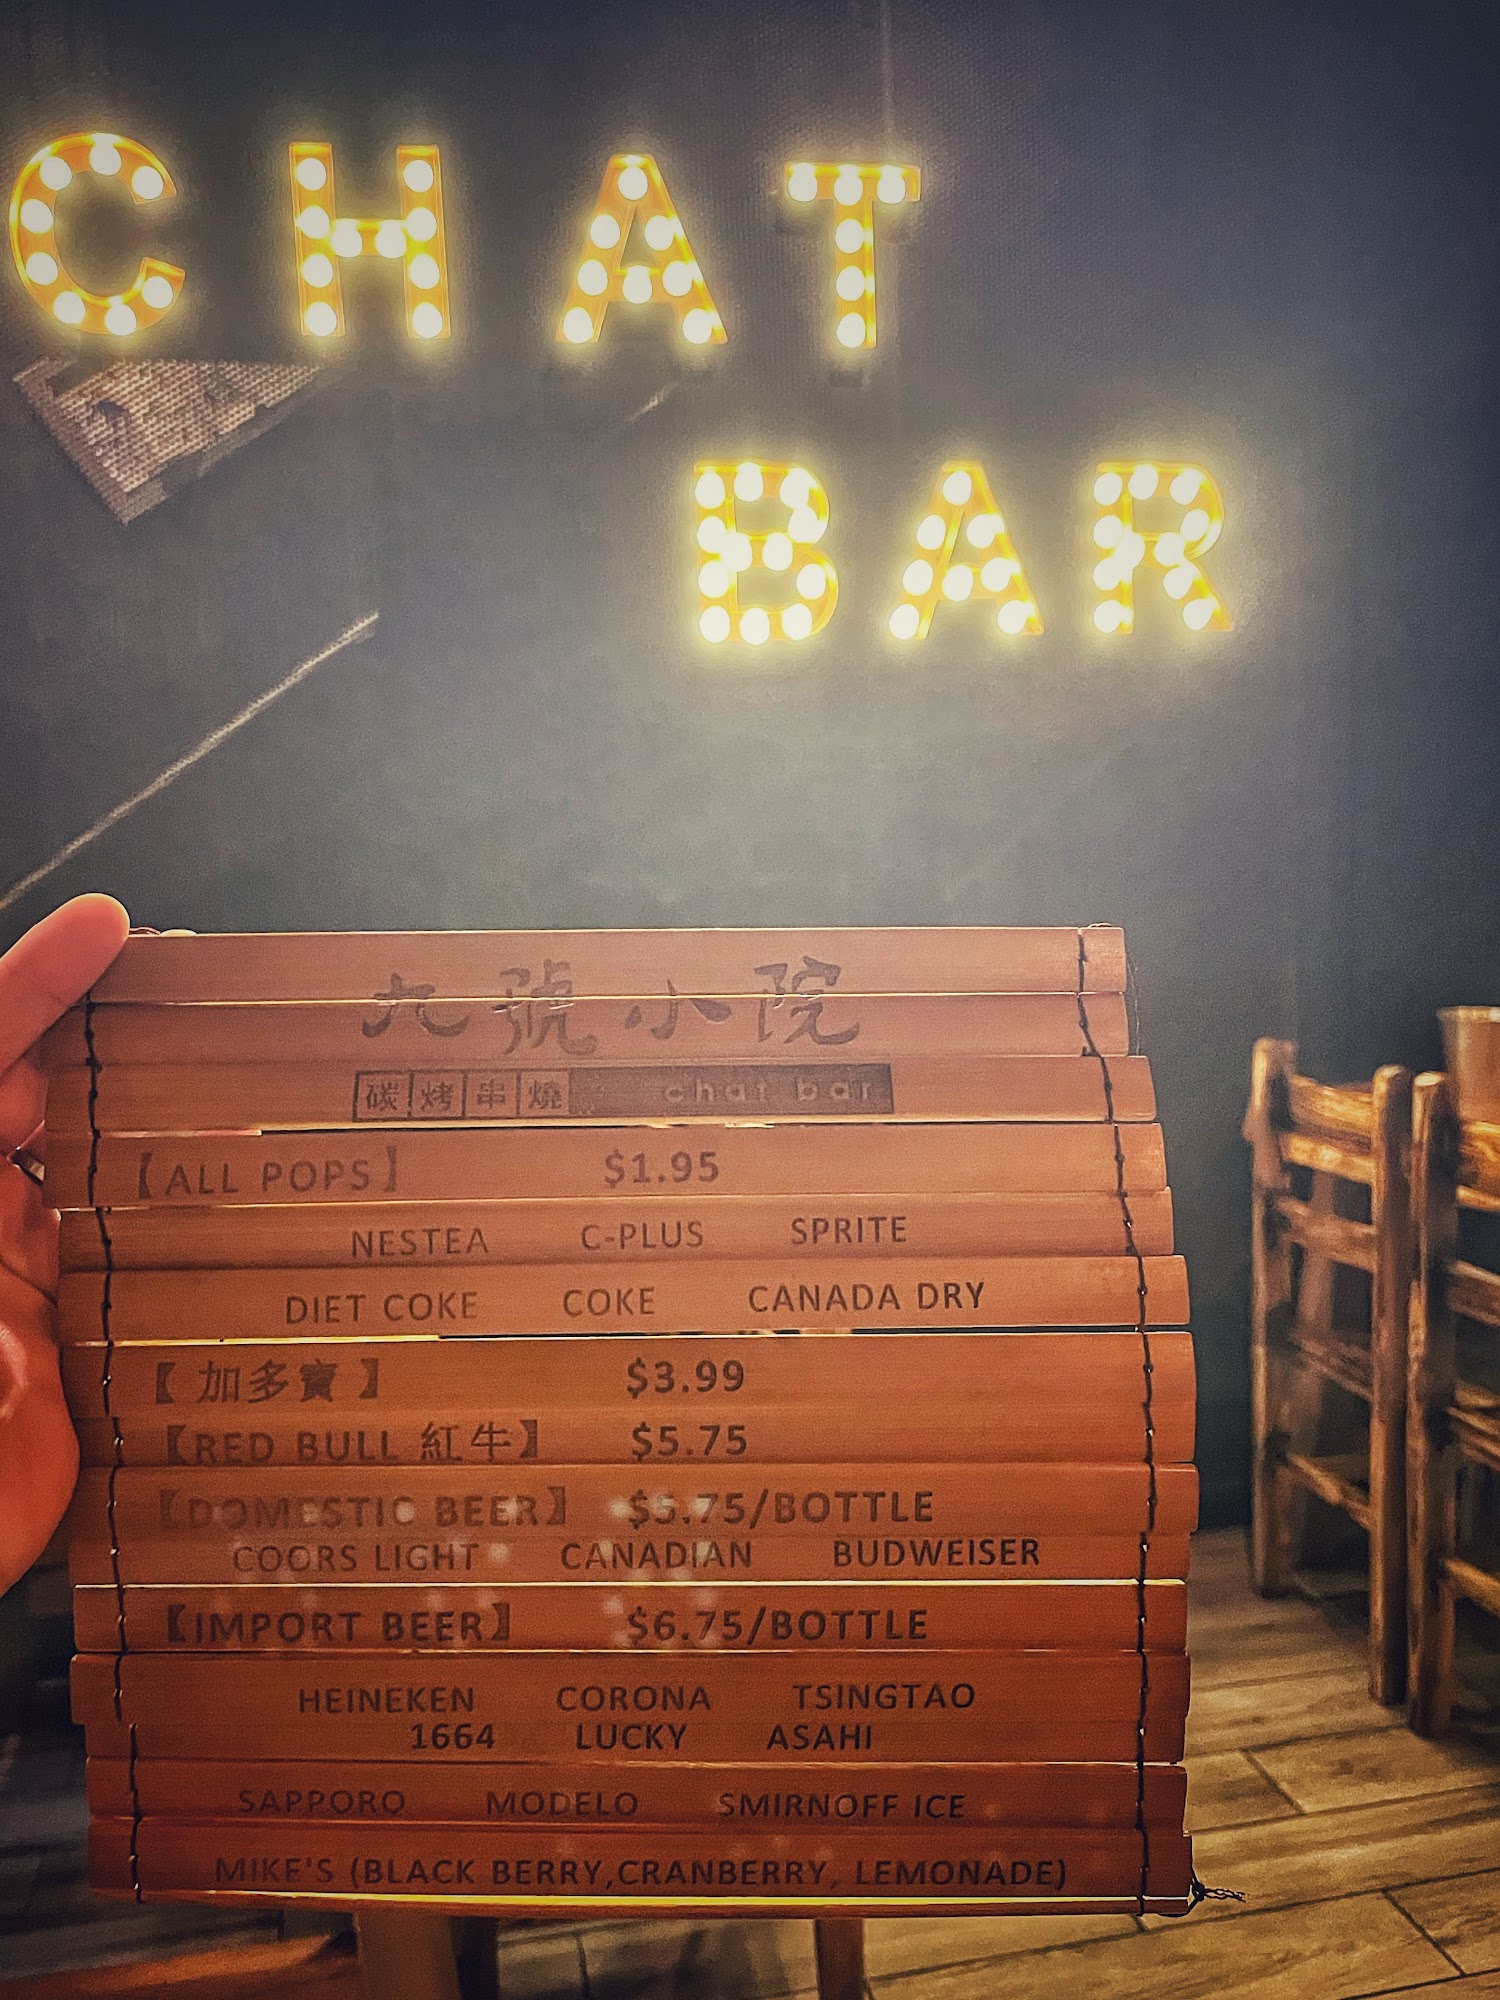 CHAT
BAR
九號小院
碳烤串燒 chat bar
【ALL POPS】 $1.95
NESTEA C-PLUS SPRITE
DIET COKE COKE CANADA DRY
【加多寶】 $3.99
【RED BULL 紅牛】 $5.75
【DOMESTIC BEER】 $5.75/BOTTLE
COORS LIGHT CANADIAN BUDWEISER
【IMPORT BEER】 $6.75/BOTTLE
HEINEKEN CORONA TSINGTAO
1664 LUCKY ASAHI
SAPPORO MODELO SMIRNOFF ICE
MIKE'S (BLACK BERRY,CRANBERRY, LEMONADE)